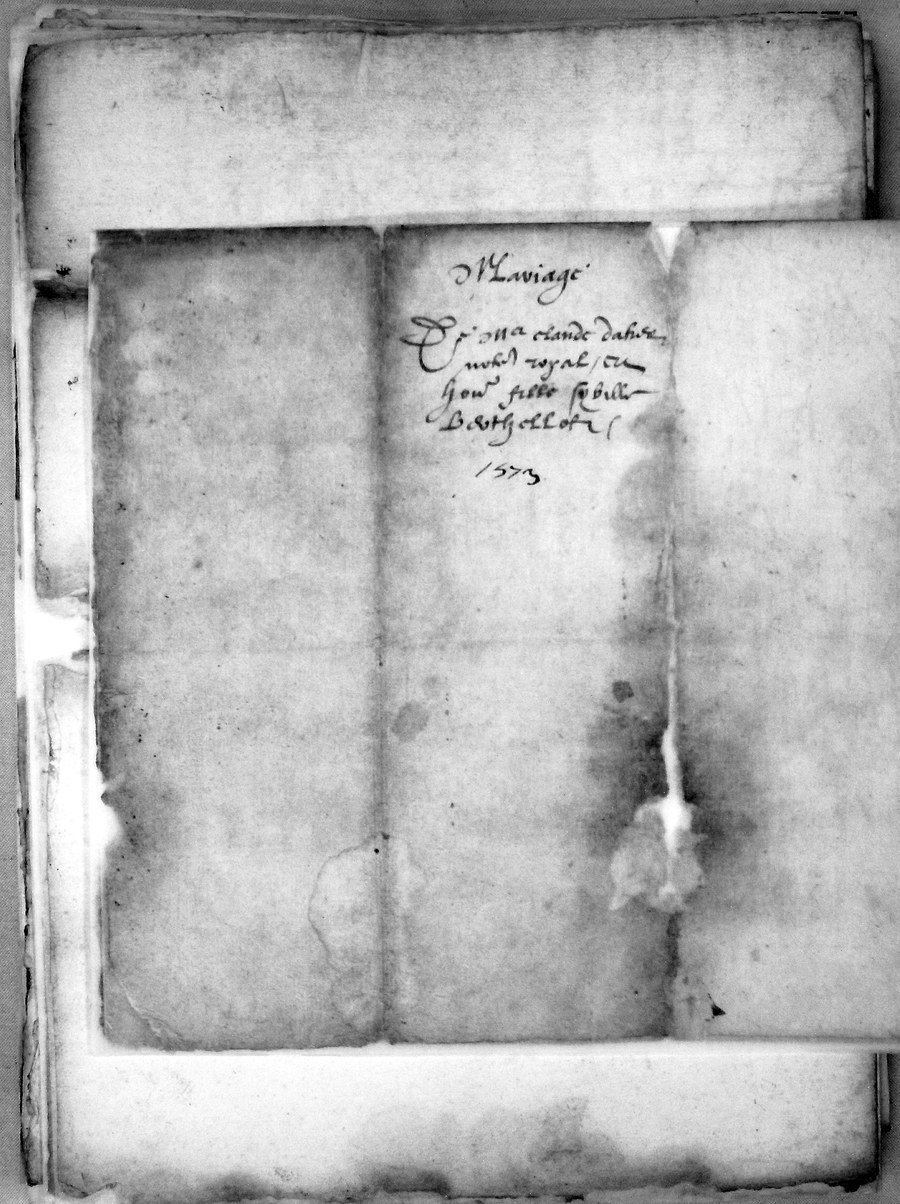 Mariage
De Me claude dahes
note royal / Et
hone fille sybille
Berthellot /
1573